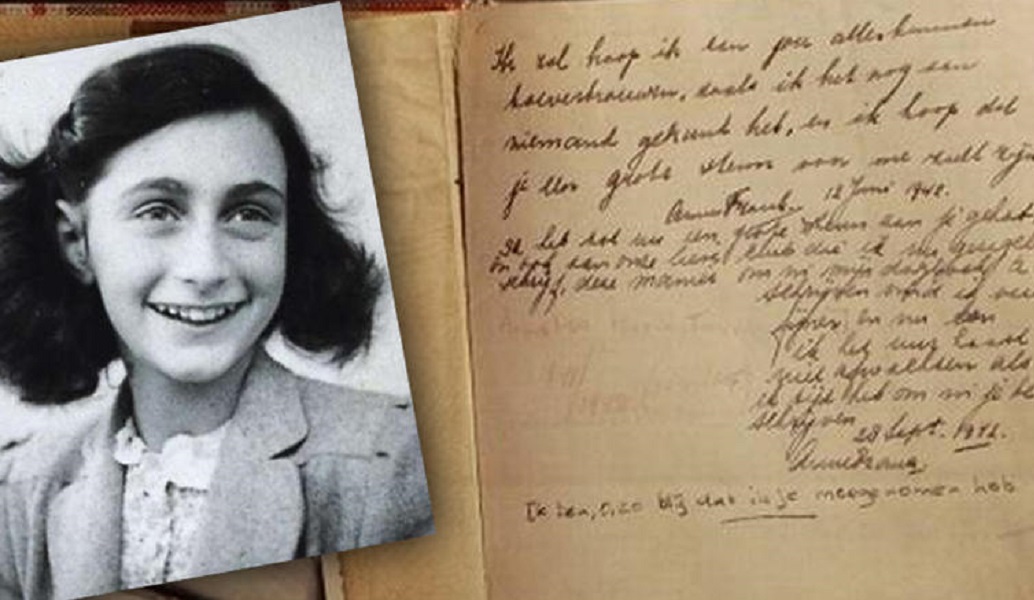 Ik zal hoop ik aan jou alles kunnen
toevertrouwen, zoals ik het nog aan
niemand gekund heb, en ik hoop dat
je een grote steun voor me zult zijn
Anne Frank. 12 Juni 1942.
Ik heb tot nu een grote steun aan je gehad
en ook aan onze lieve club die ik nu geregel
schrijf, deze manier om in mijn dagboek
schrijven vind ik vee
fijner en nu kan
ik het uur haast
niet afwachten als
ik tijd heb om in je te
schrijven
28 Sept. 1942.
Anne Frank.
Ik ben, o, zo blij dat ik je meegenomen heb